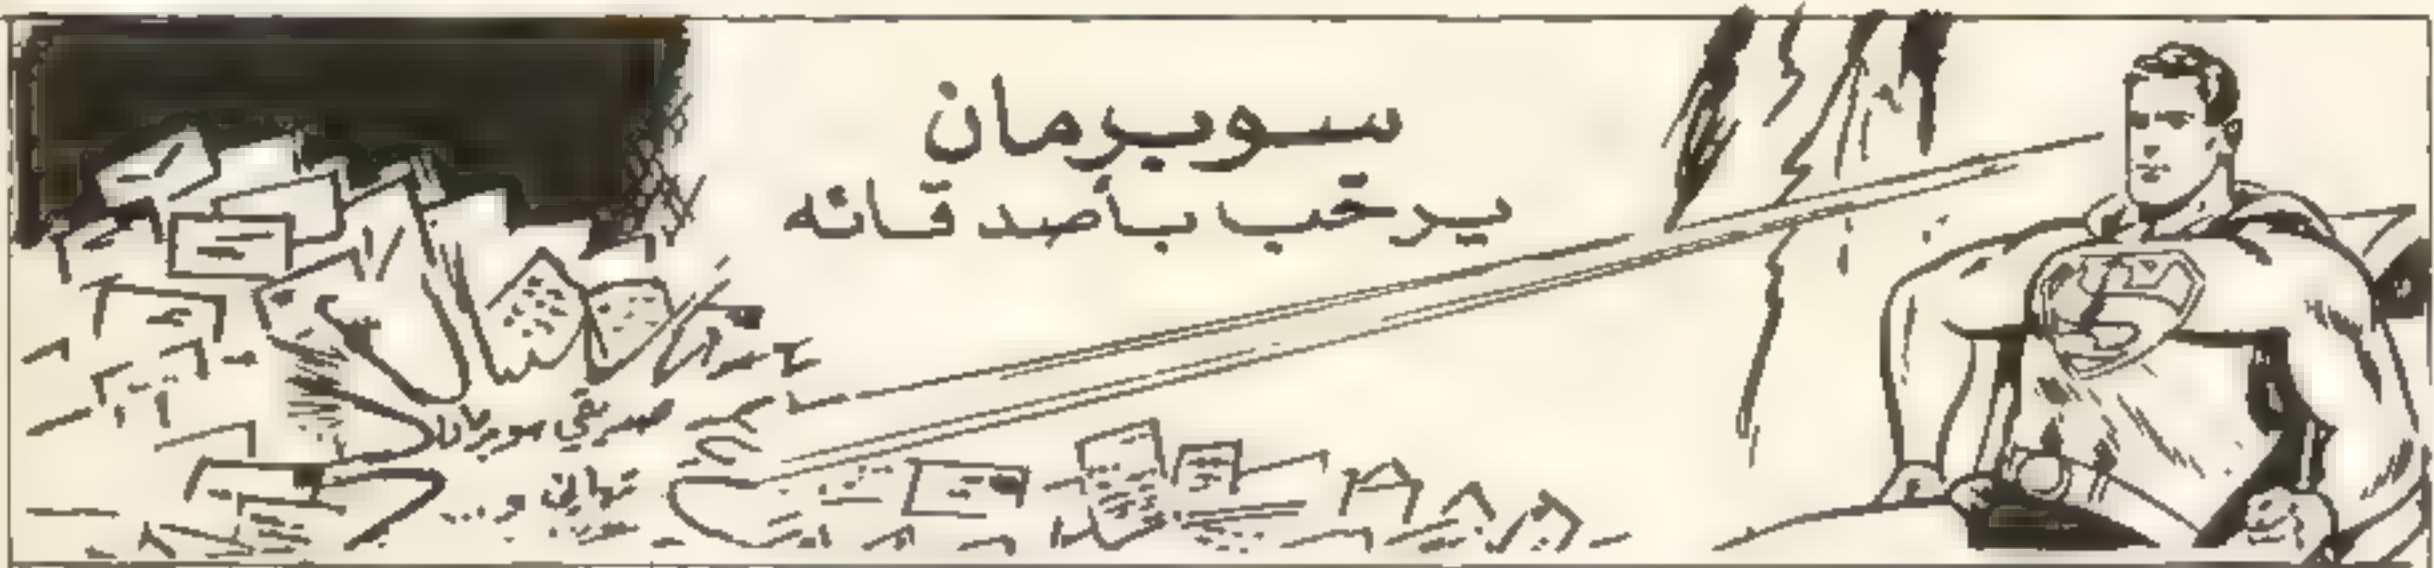 سوبرمان
يرحّب بأصدقائه
صديقي سوبرمان
تهاني و...